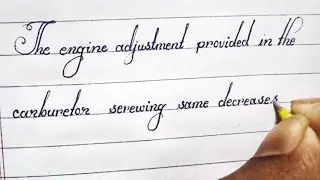 The engine adjustment provided in the
carburetor serewing same decreases